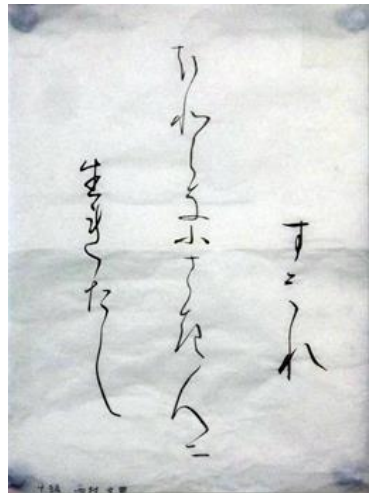 すみれ
ほとな小さき人に
生れたし